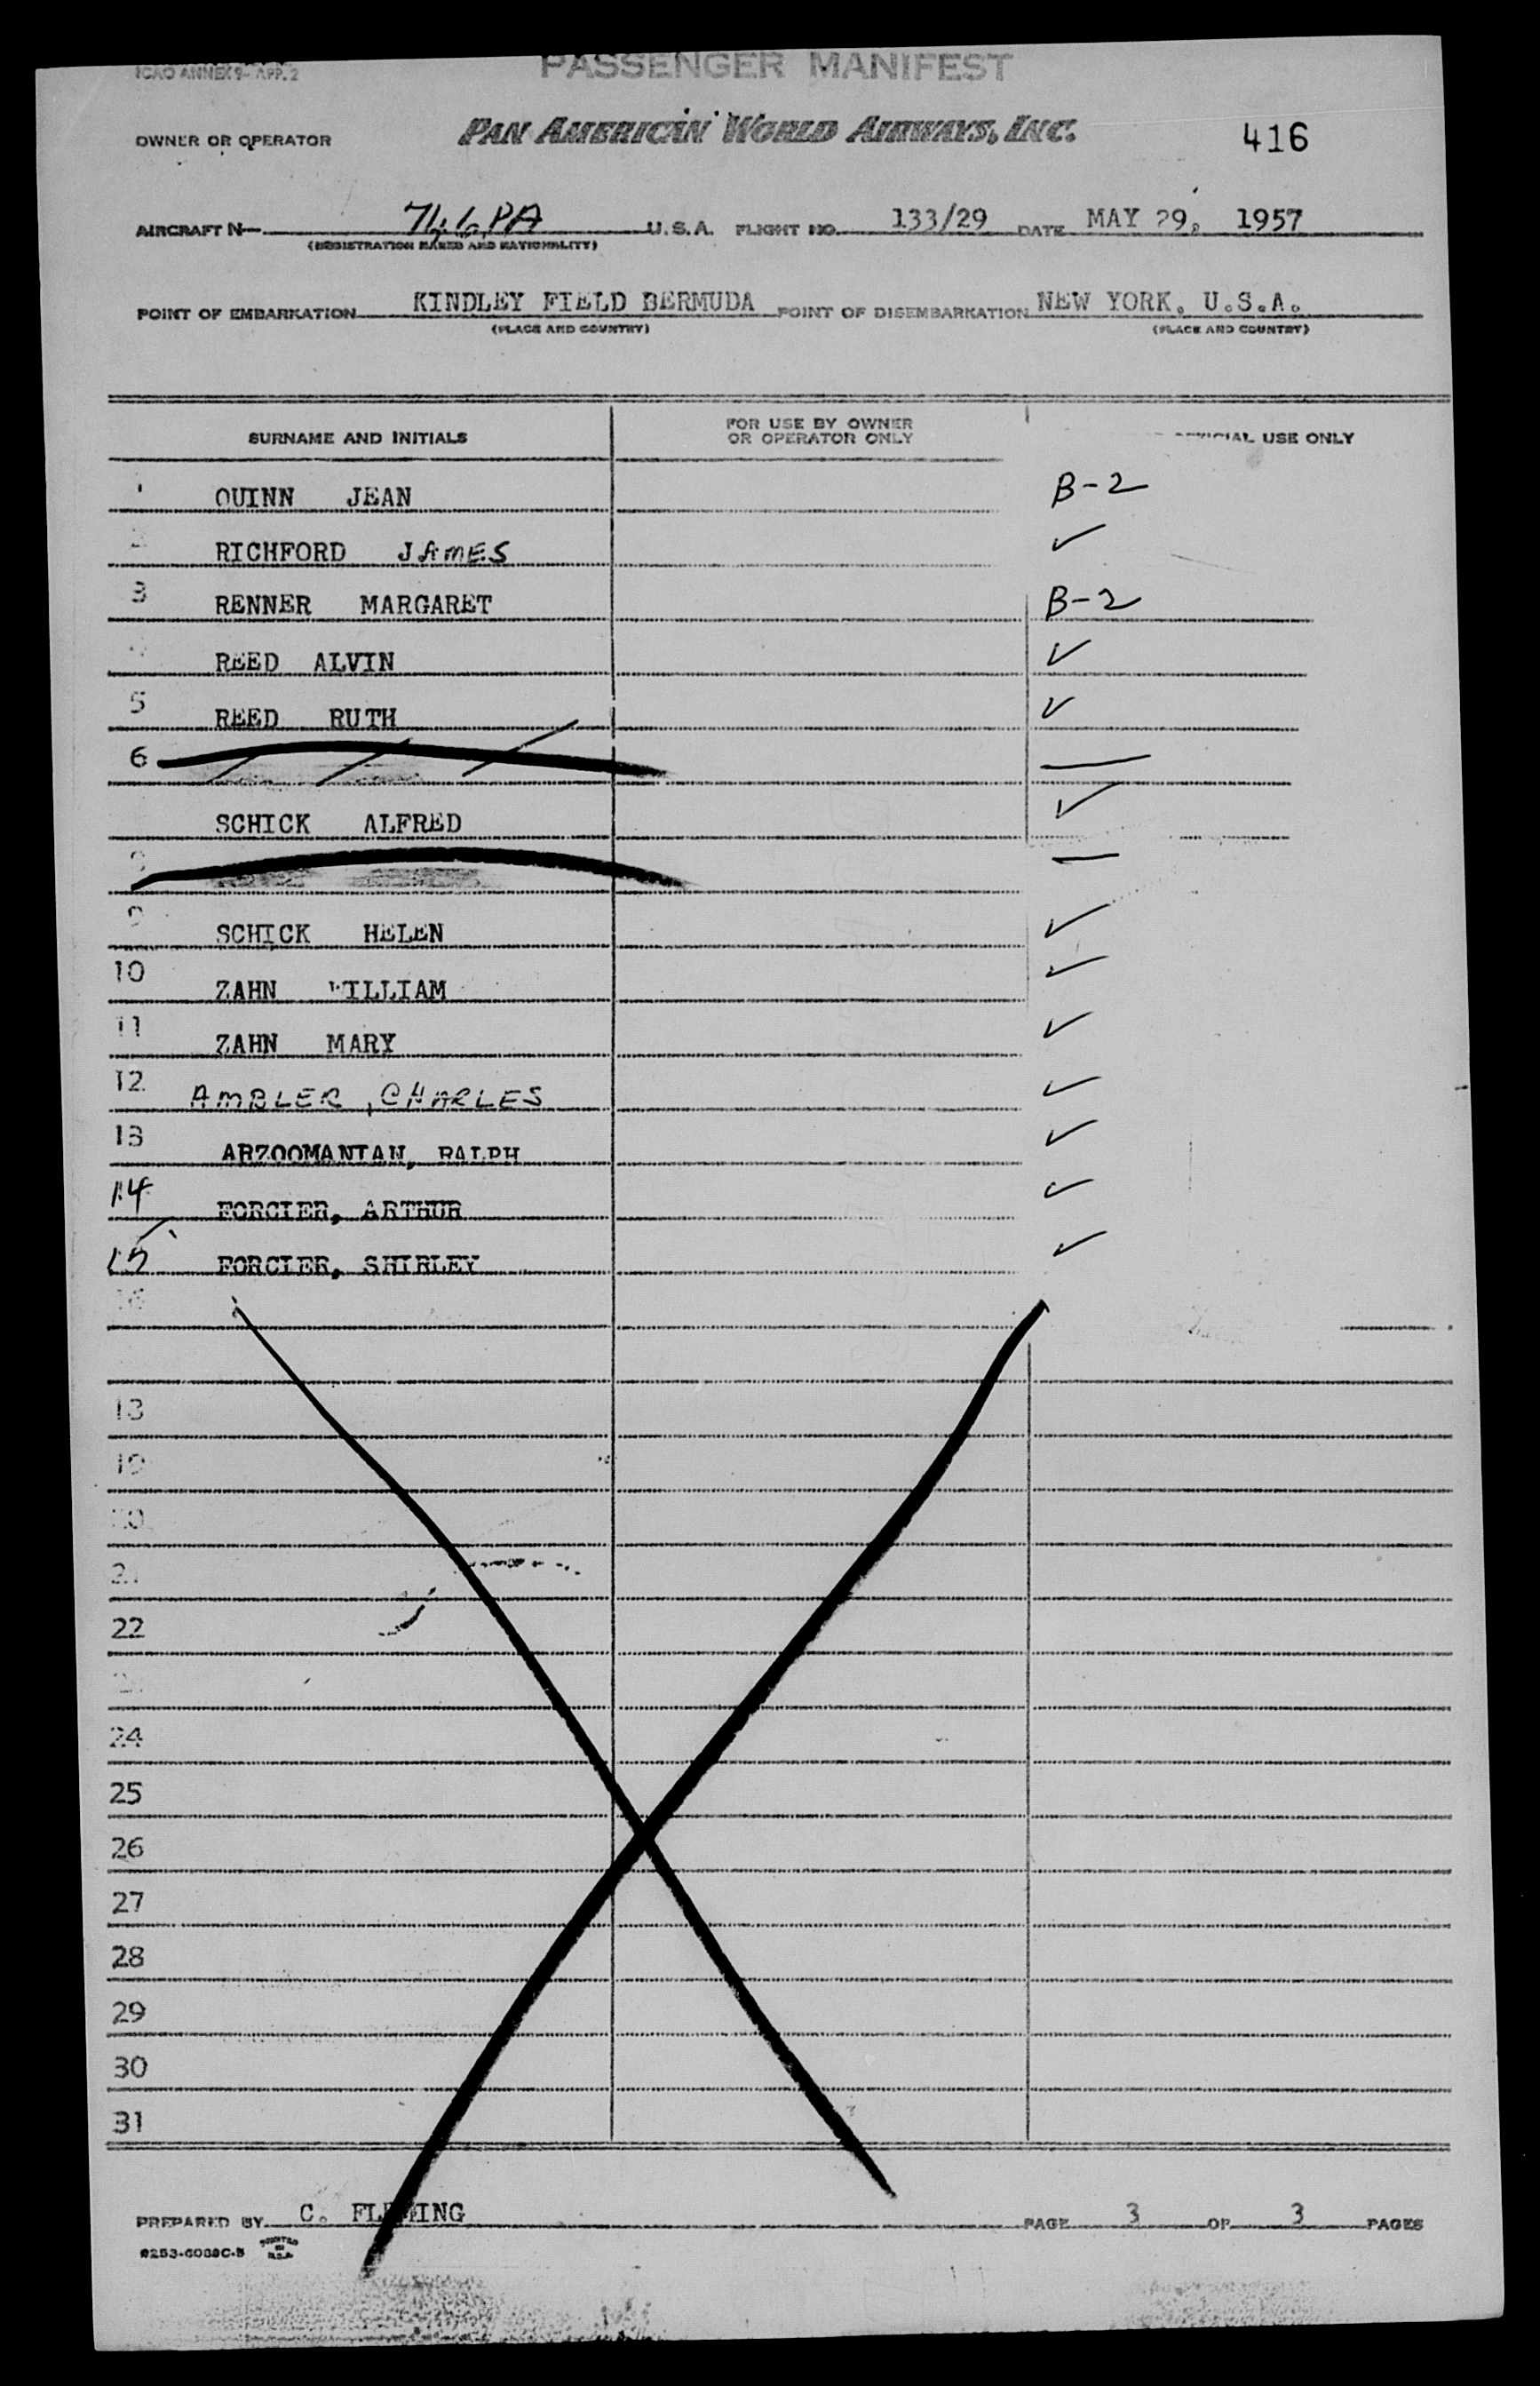 ICAO ANNEX 9- APP. 2
PASSENGER MANIFEST
OWNER OR OPERATOR PAN AMERICAN WORLD AIRWAYS, INC. 416
AIRCRAFT N- PA U.S.A. FLIGHT NO. 133/29 DATE MAY 29, 1957
(REGISTRATION MARKS AND NATIONALITY)
POINT OF EMBARKATION KINDLEY FIELD BERMUDA POINT OF DISEMBARKATION NEW YORK, U.S.A.
(PLACE AND COUNTRY) (PLACE AND COUNTRY)
SURNAME AND INITIALS FOR USE BY OWNER OR OPERATOR ONLY OFFICIAL USE ONLY
1 QUINN JEAN B-2
2 RICHFORD JAMES ✓
3 RENNER MARGARET B-2
4 REED ALVIN ✓
5 REED RUTH ✓
6 —
SCHICK ALFRED ✓
8 —
9 SCHICK HELEN ✓
10 ZAHN WILLIAM ✓
11 ZAHN MARY ✓
12 AMBLER, CHARLES ✓
13 ARZOOMANIAN, RALPH ✓
14 FORCIER, ARTHUR ✓
15 FORCIER, SHIRLEY ✓
16
18
19
20
21
22
24
25
26
27
28
29
30
31
PREPARED BY C. FLEMING PAGE 3 OF 3 PAGES
PRINTED IN U.S.A.